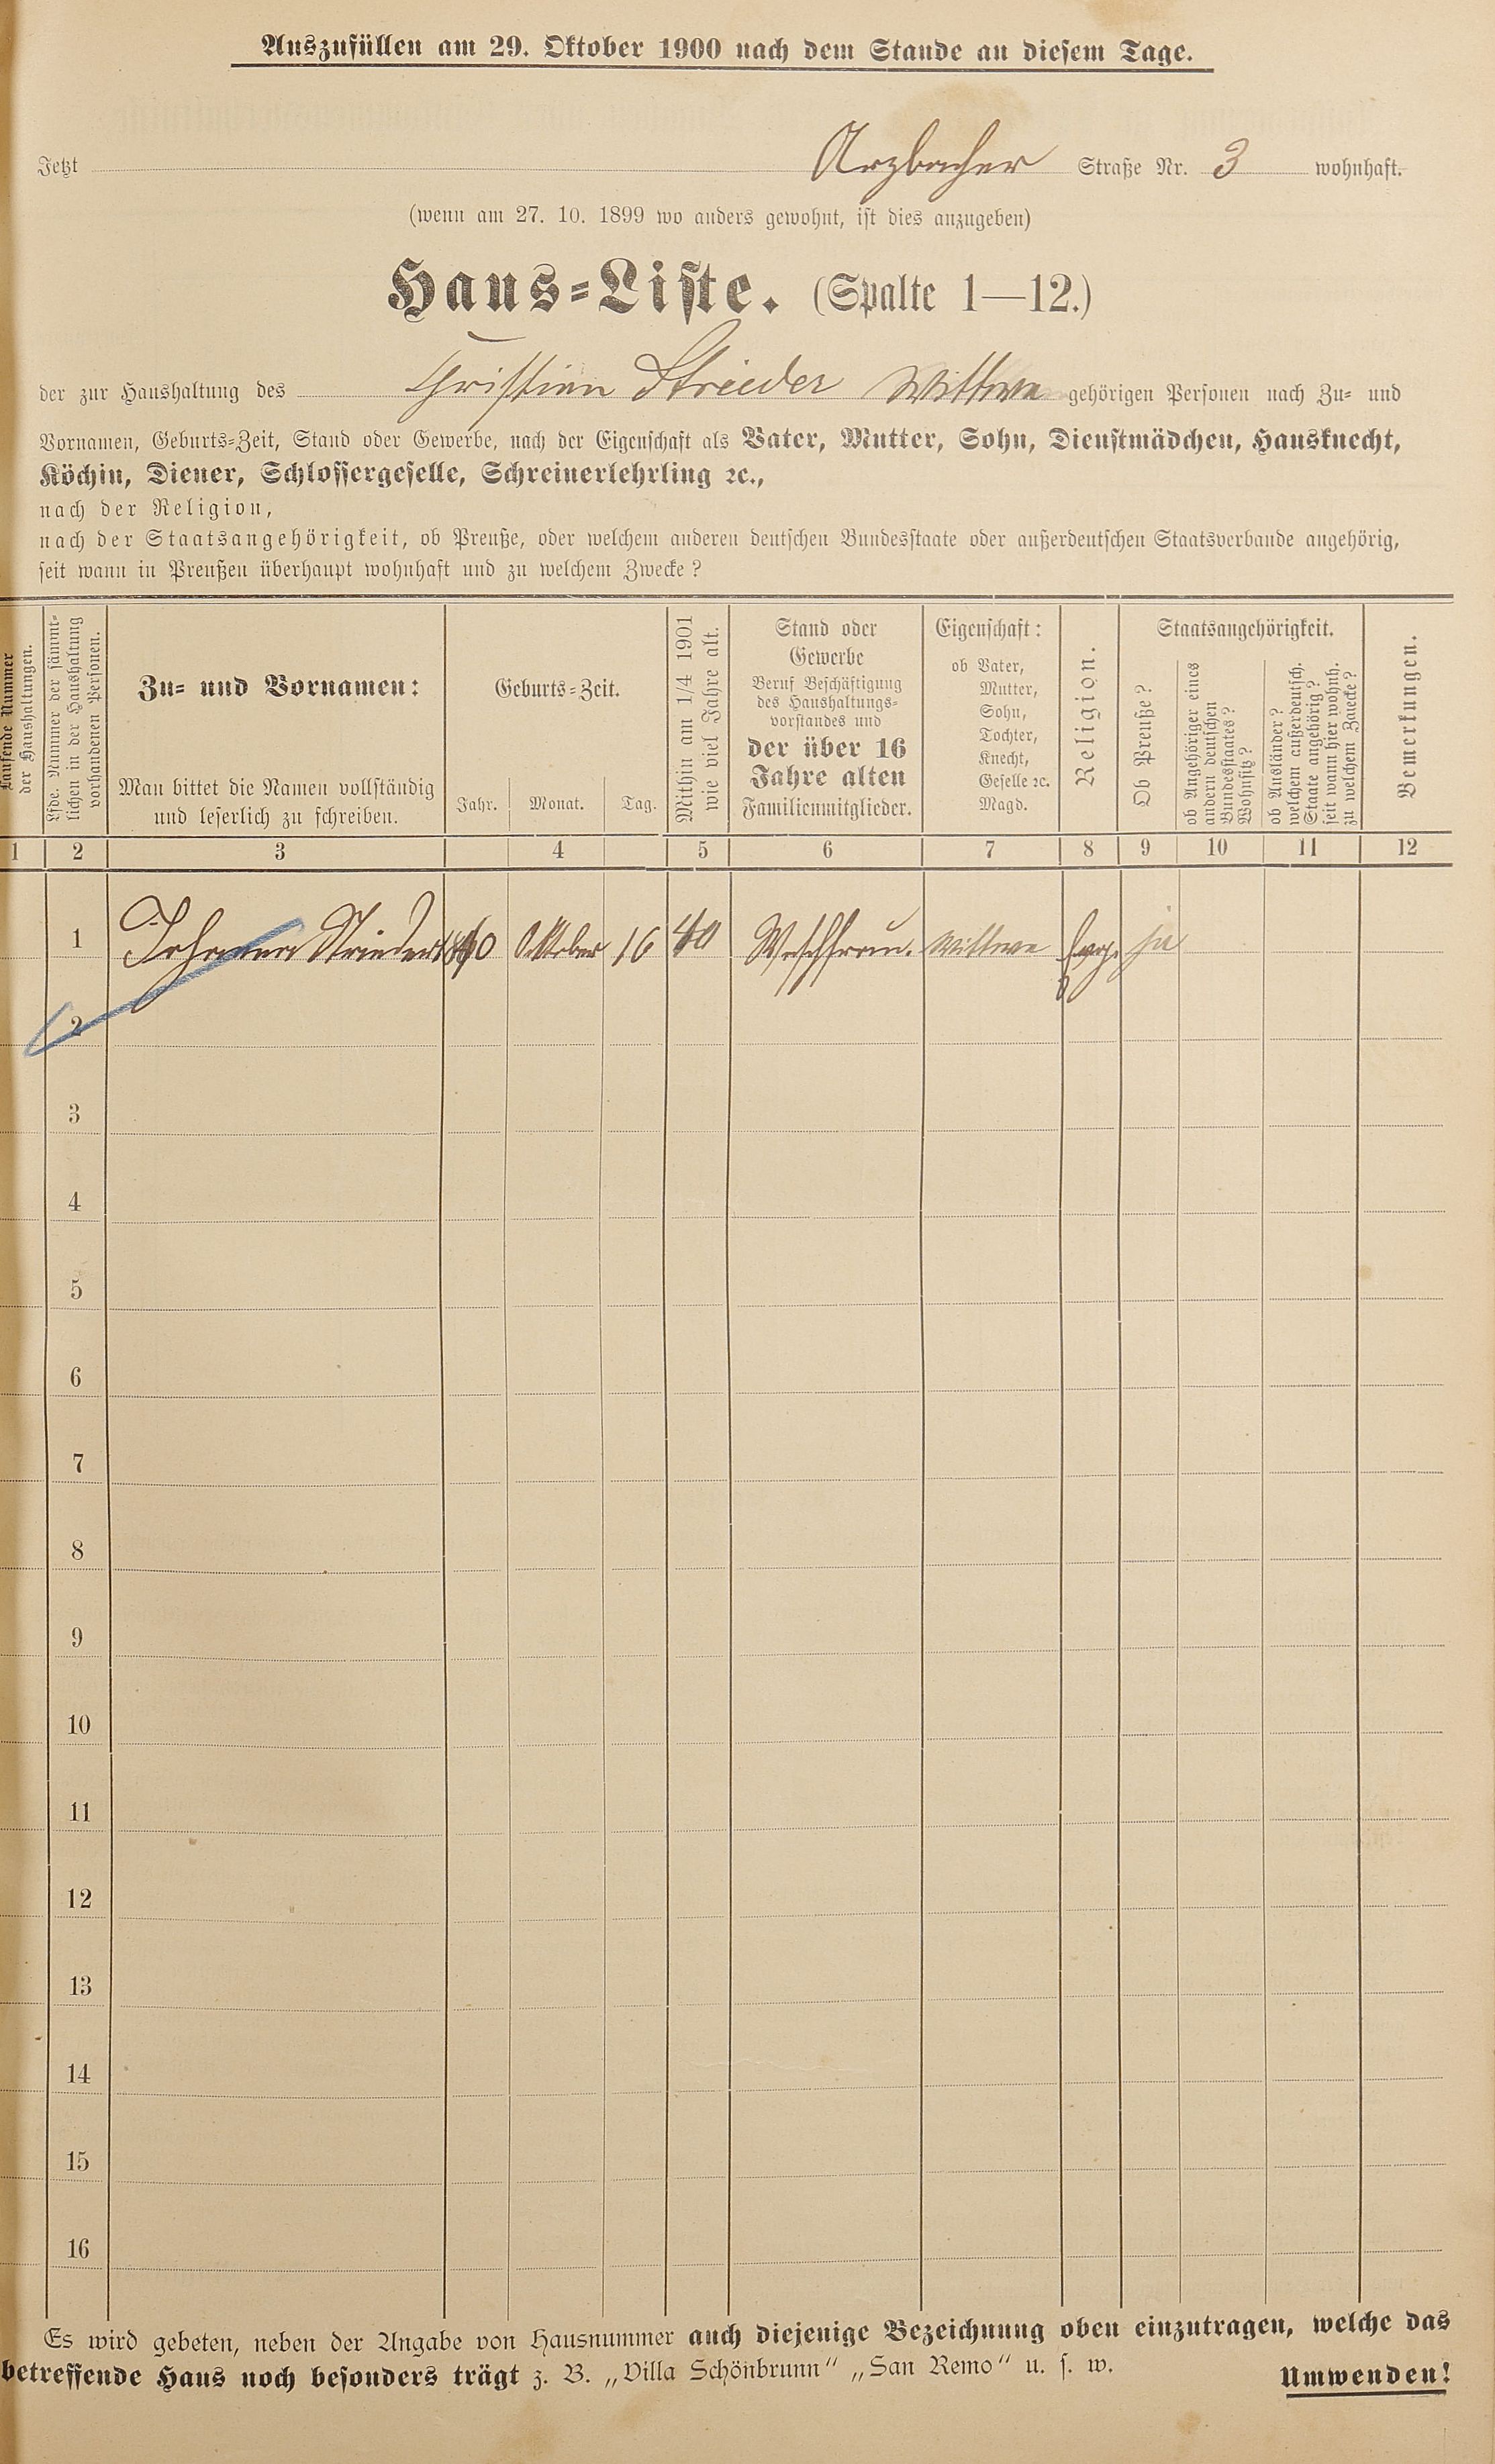 Auszufüllen am 29. Oktober 1900 nach dem Stande an diesem Tage.
Jetzt Arzbacher Straße Nr. 3 wohnhaft.
(wenn am 27. 10. 1899 wo anders gewohnt, ist dies anzugeben)
Haus-Liste. (Spalte 1—12.)
der zur Haushaltung des Christian Strieder Wittwe gehörigen Personen nach Zu- und
Vornamen, Geburts-Zeit, Stand oder Gewerbe, nach der Eigenschaft als Vater, Mutter, Sohn, Dienstmädchen, Hausknecht,
Köchin, Diener, Schlossergeselle, Schreinerlehrling ꝛc.,
nach der Religion,
nach der Staatsangehörigkeit, ob Preuße, oder welchem anderen deutschen Bundesstaate oder außerdeutschen Staatsverbande angehörig,
seit wann in Preußen überhaupt wohnhaft und zu welchem Zwecke?
Laufende Nummer
der Haushaltungen.
Lfde. Nummer der sämmt-
lichen in der Haushaltung
vorhandenen Personen.
Zu- und Vornamen:
Man bittet die Namen vollständig
und leserlich zu schreiben.
Geburts-Zeit.
Jahr. Monat. Tag.
Mithin am 1/4 1901
wie viel Jahre alt.
Stand oder
Gewerbe
Beruf Beschäftigung
des Haushaltungs-
vorstandes und
der über 16
Jahre alten
Familienmitglieder.
Eigenschaft:
ob Vater,
Mutter,
Sohn,
Tochter,
Knecht,
Geselle ꝛc.
Magd.
Religion.
Staatsangehörigkeit.
Ob Preuße?
ob Angehöriger eines
andern deutschen
Bundesstaates?
Wohnsitz?
ob Ausländer?
welchem außerdeutsch.
Staate angehörig?
seit wann hier wohnh.
zu welchem Zwecke?
Bemerkungen.
1 2 3 4 5 6 7 8 9 10 11 12
1 Johanna Strieder 1860 Oktober 16 40 Waschfrau. Wittwe Evg. ja
2
3
4
5
6
7
8
9
10
11
12
13
14
15
16
Es wird gebeten, neben der Angabe von Hausnummer auch diejenige Bezeichnung oben einzutragen, welche das
betreffende Haus noch besonders trägt z. B. „Villa Schönbrunn“ „San Remo“ u. s. w.
Umwenden!